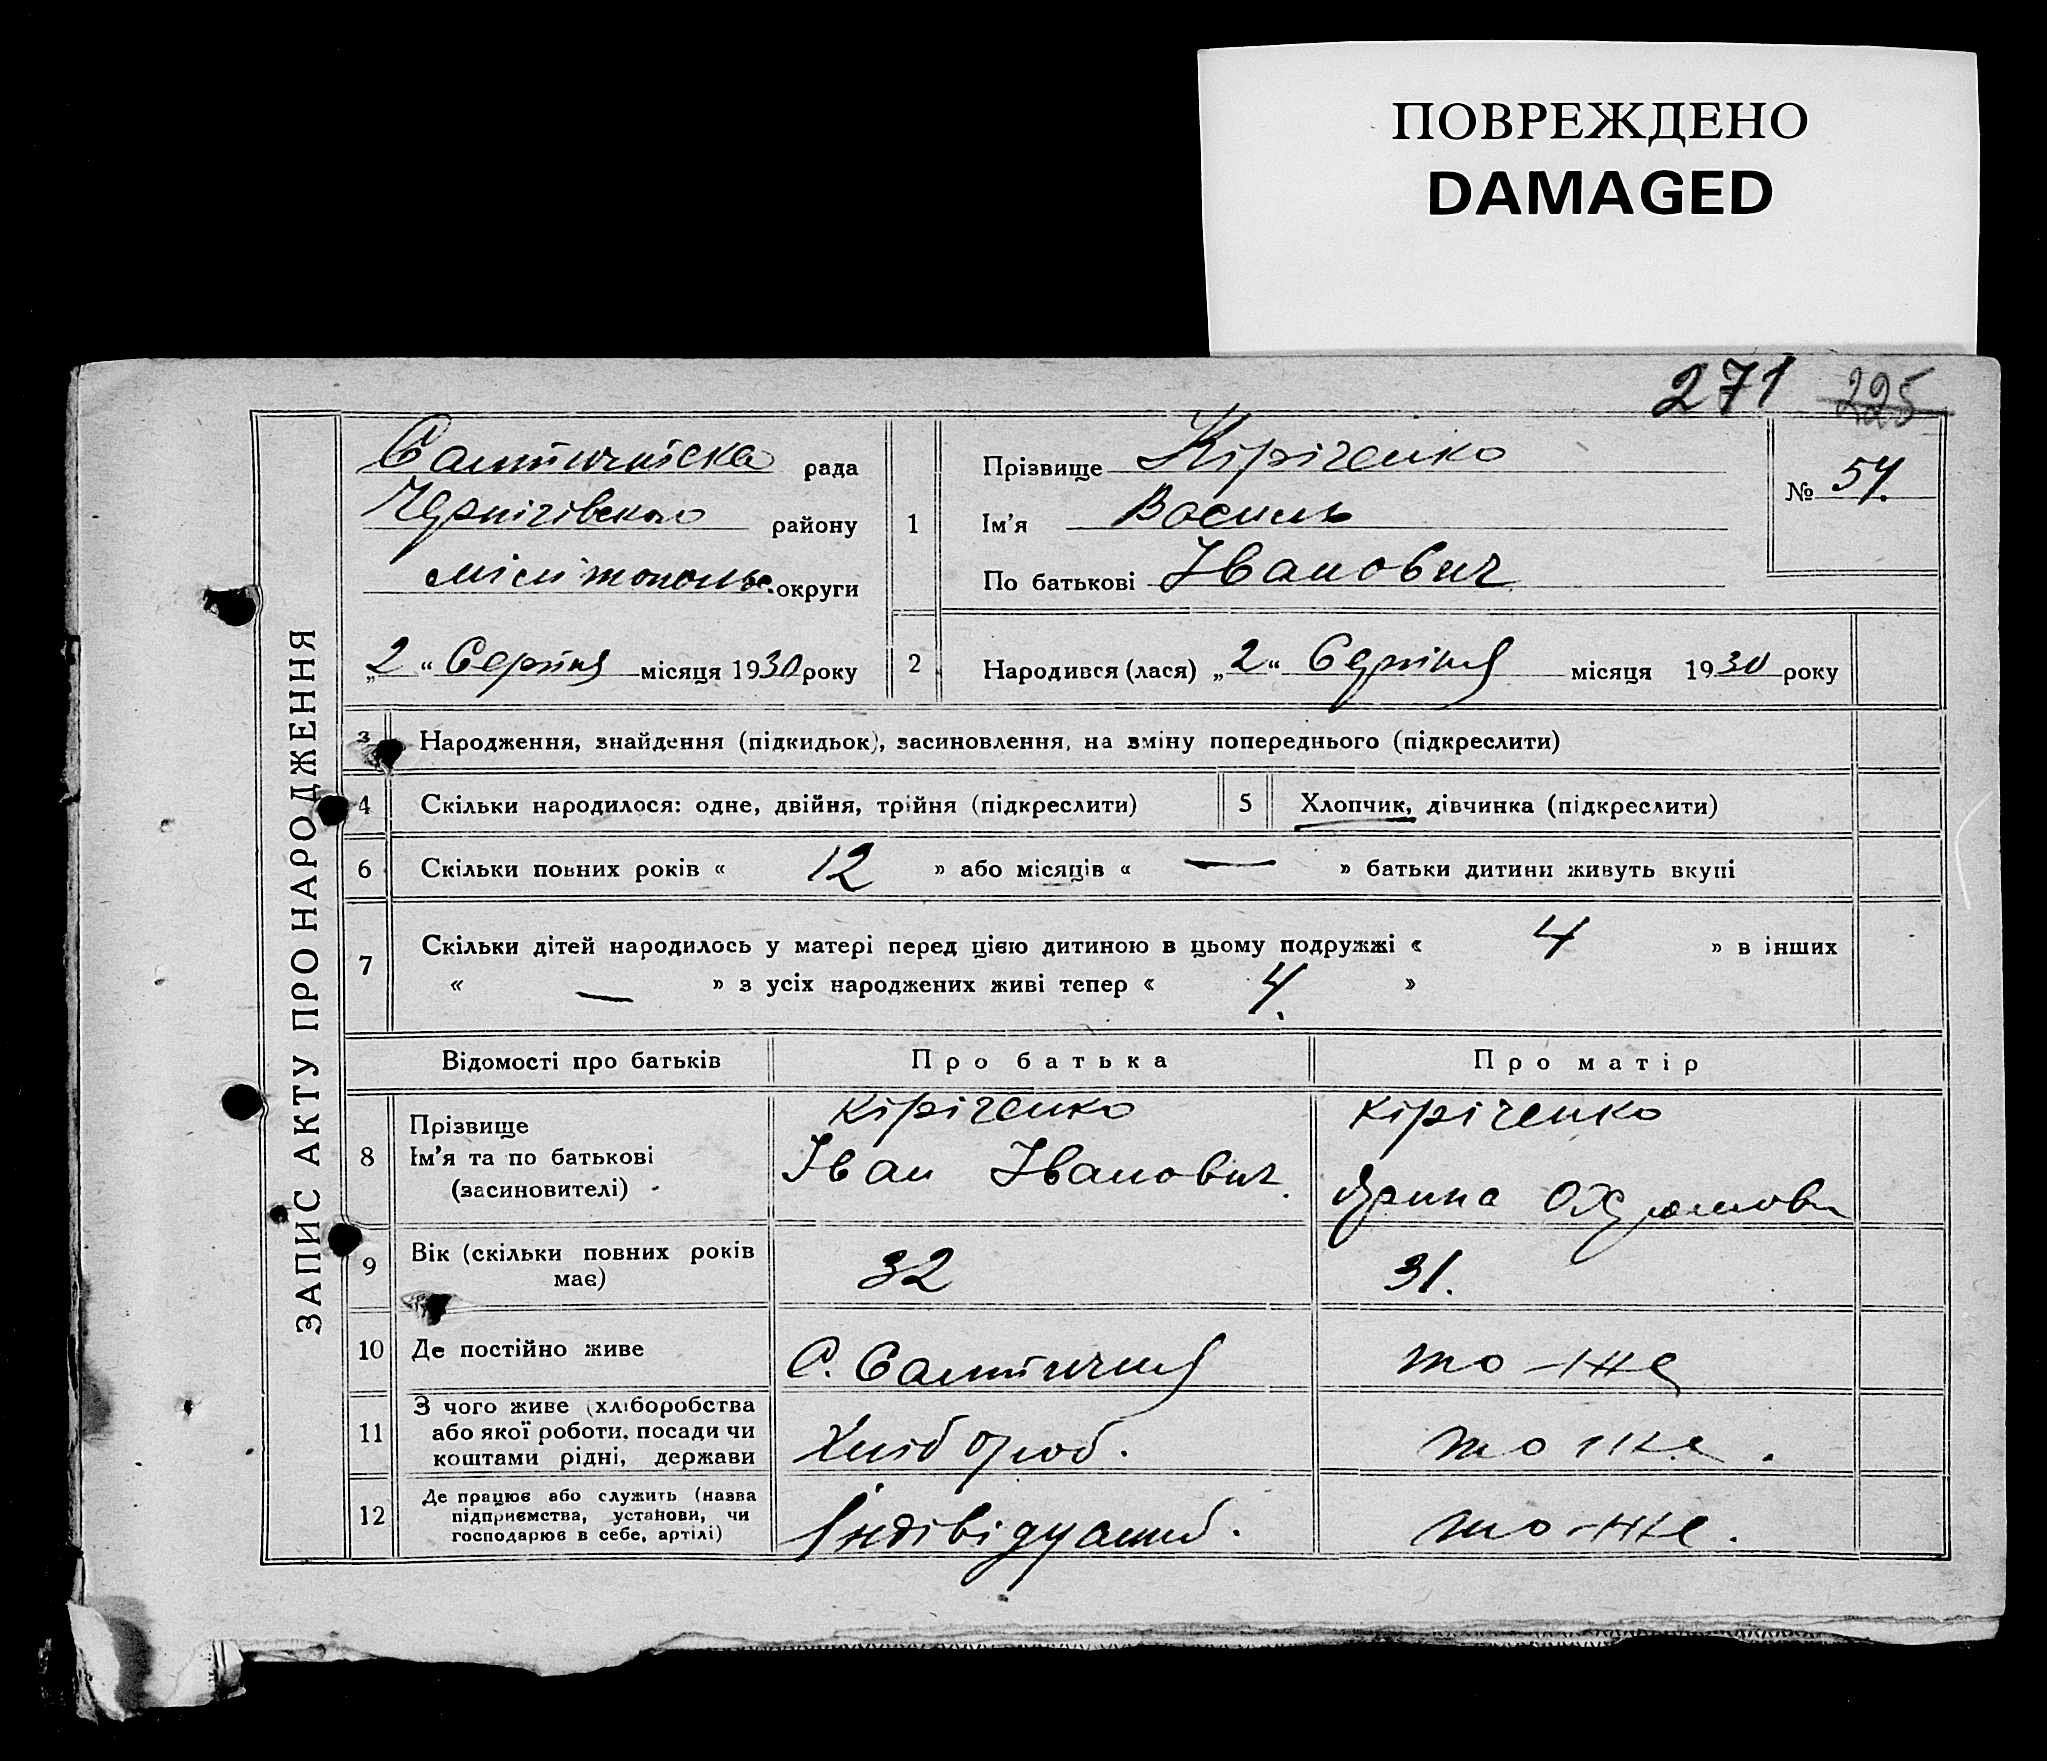 ПОВРЕЖДЕНО
DAMAGED
271 225
ЗАПИС АКТУ ПРО НАРОДЖЕННЯ
Салтичійска рада
Чернігівского району
округи
„2“ Серпня місяця 1930 року
1
Прізвище Кіріченко
Ім'я Василь
По батькові Іванович
№ 54.
2 Народився (лася) „2“ Серпня місяця 1930 року
3 Народження, знайдення (підкидьок), засиновлення, на зміну попереднього (підкреслити)
4 Скільки народилося: одне, двійня, трійня (підкреслити) 5 Хлопчик, дівчинка (підкреслити)
6 Скільки повних років « 12 » або місяців « — » батьки дитини живуть вкупі
7 Скільки дітей народилось у матері перед цією дитиною в цьому подружжі « 4 » в інших
« — » з усіх народжених живі тепер « 4. »
Відомості про батьків Про батька Про матір
8 Прізвище
Ім'я та по батькові
(засиновителі)
Кіріченко
Іван Іванович.
Кіріченко
Ярина
9 Вік (скільки повних років
має)
32 31.
10 Де постійно живе С. Салтичия то-же
11 З чого живе (хліборобства
або якої роботи, посади чи
коштами рідні, держави
Хлібороб. то же.
12 Де працює або служить (назва
підприємства, установи, чи
господарює в себе, артілі)
то-же.